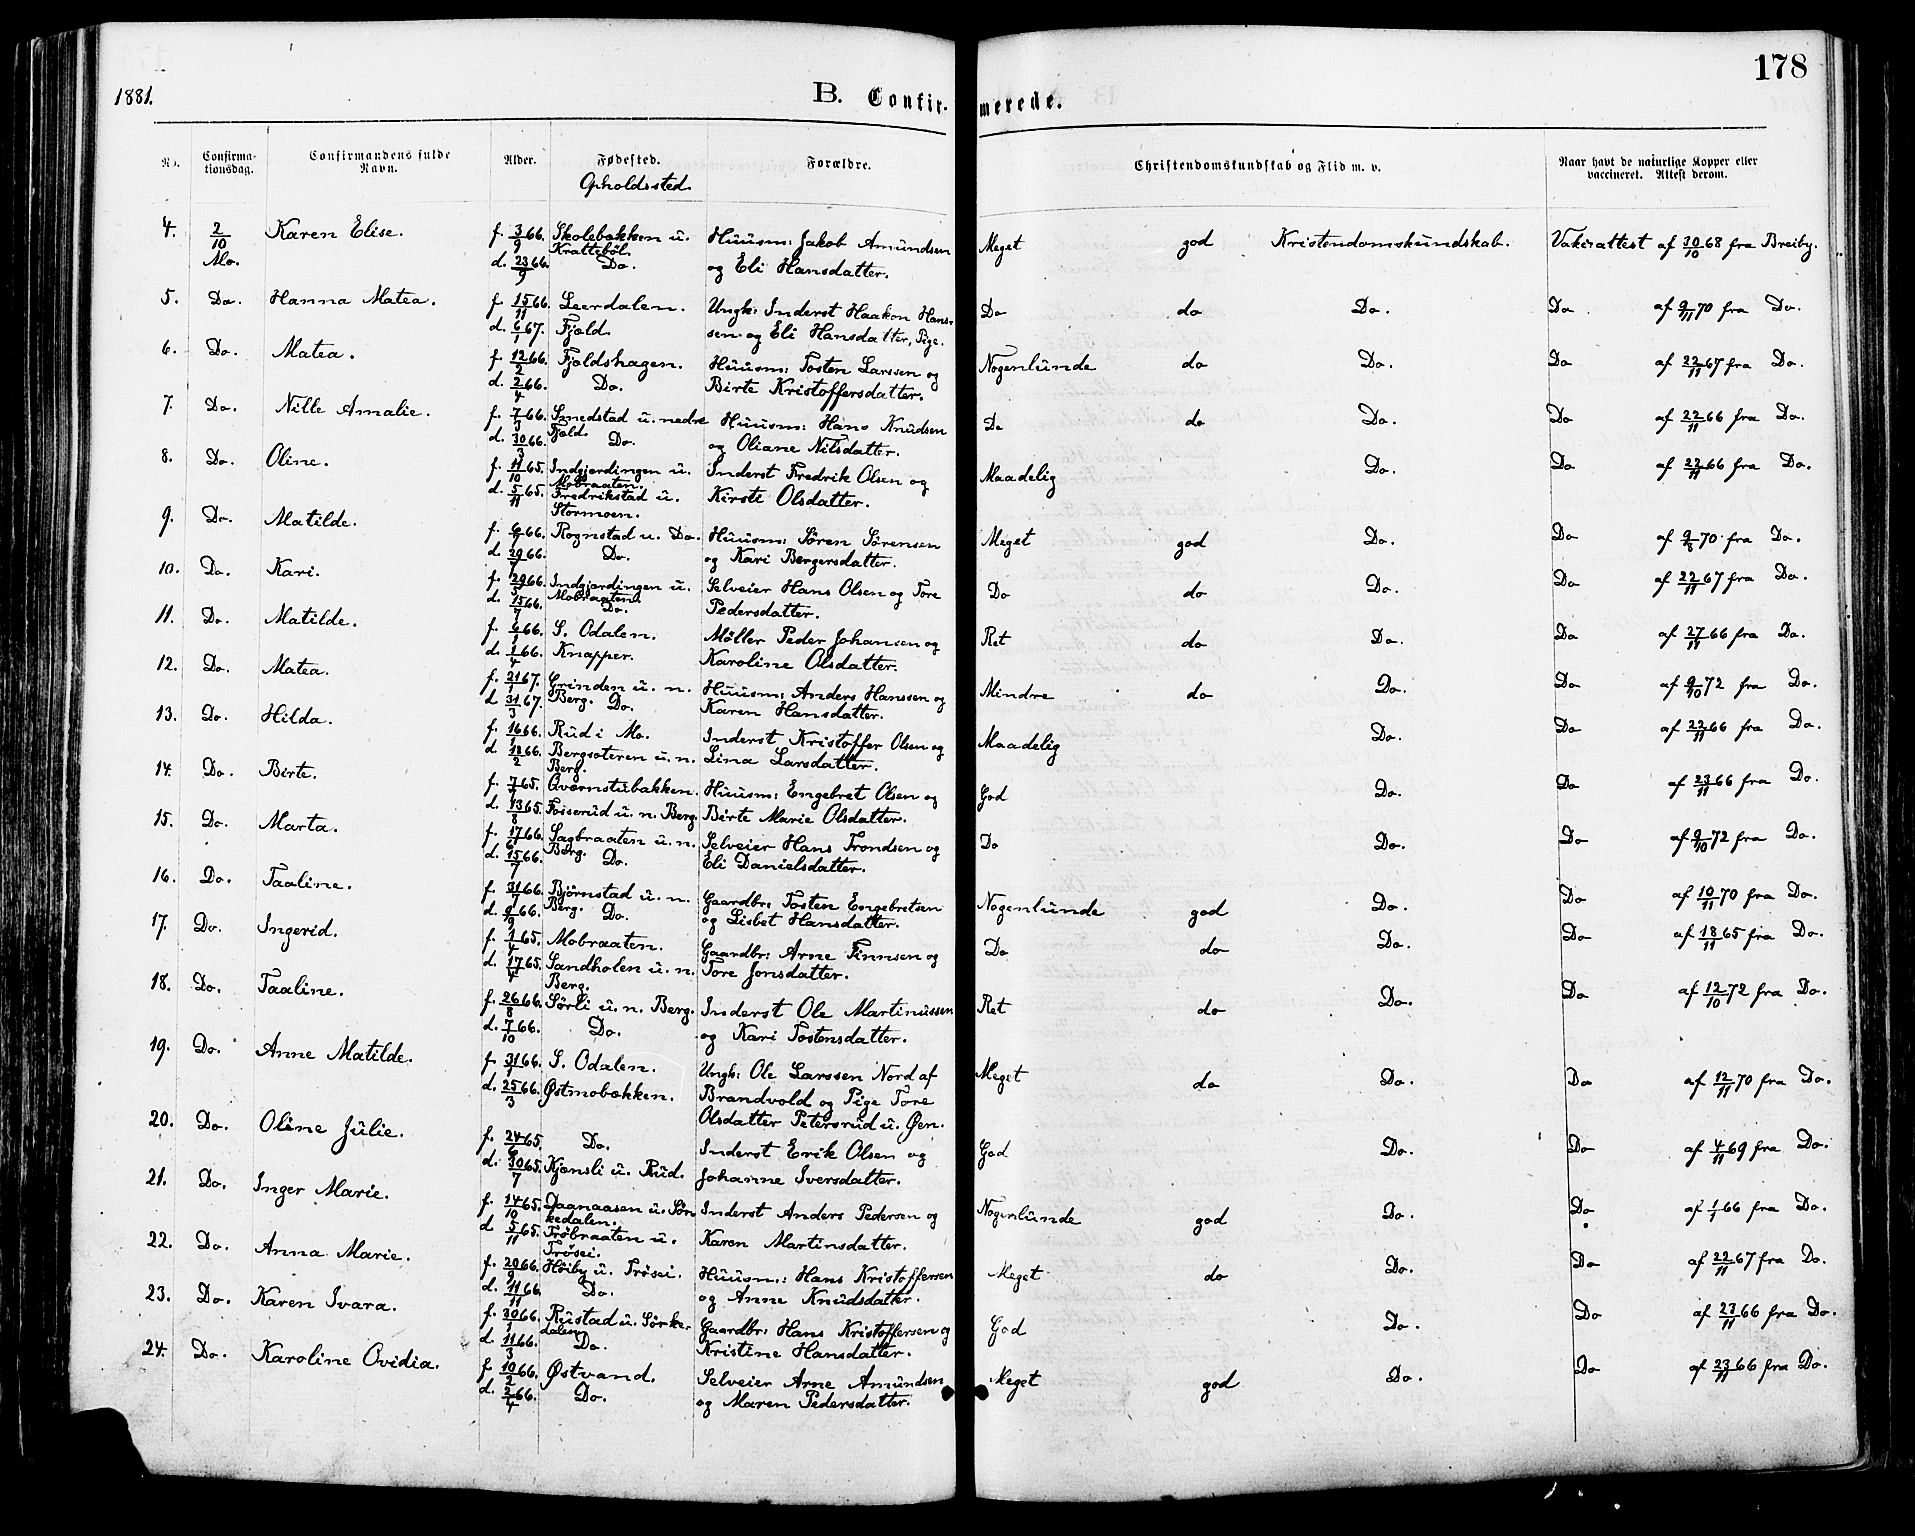 178
1881.
B. Confirmerede.
No. Confirmationsdag. Confirmandens fulde Navn. Alder. Fødested. Opholdssted. Forældre. Christendomskundskab og Flid m. v. Naar havt de naturlige Kopper eller vaccineret. Attest derom.
4. 2/10 Karen Elise. f. 3/9 66. Skolebakken u. Krattebøl. Huusm: Jakob Amundsen Meget god Kristendomskundskab. Vakcattest af 30/10 68 fra Breiby.
Mo. d. 23/9 66. Do. og Eli Hansdatter.
5. Do. Hanna Matea. f. 15/11 66. Leerdalen. Ungk: Inderst Haakon Hans- Do do Do. Do af 9/11 70 fra Do.
d. 6/1 67. Fjeld. sen og Eli Hansdatter, Pige.
6. Do. Matea. f. 12/2 66. Fjeldshagen. Huusm: Tosten Larssen og Nogenlunde do Do. Do af 22/11 67 fra Do.
d. 2/4 66. Do. Birte Kristoffersdatter.
7. Do. Nille Amalie. f. 7/1 66. Smedstad u. nedre Fjeld. Huusm: Hans Knudsen Do do Do. Do af 22/11 66 fra Do.
d. 30/3 66. Do. og Oliane Nilsdatter.
8. Do. Oline. f. 11/10 65. Indgjerdingen u. Mobraaten. Inderst Fredrik Olsen og Maadelig Do. Do af 22/11 66 fra Do.
d. 5/11 65. Fredrikstad u. Stormoen. Kirsti Olsdatter.
9. Do. Matilde. f. 6/7 66. Rognstad u. Do. Huusm: Søren Sørensen Meget god Do. Do af 9/8 70 fra Do.
d. 29/7 66. Do. og Kari Bergersdatter.
10. Do. Kari. f. 29/5 66. Indgjerdingen u. Mobraaten. Selveier Hans Olsen og Tore Do do Do. Do af 22/11 67 fra Do.
d. 15/7 66. Do. Pedersdatter.
11. Do. Matilde. f. 6/1 66. S. Odalen. Møller Peder Johansen og Ret do Do. Do af 27/11 66 fra Do.
d. 1/4 66. Knapper. Karoline Olsdatter.
12. Do. Matea. f. 21/1 67. Grinden u. n. Berg. Huusm: Anders Hanssen og Mindre do Do. Do af 9/10 72 fra Do.
d. 31/3 67. Do. Karen Hansdatter.
13. Do. Hilda. f. 16/1 66. Rud i Mo. Inderst Kristoffer Olsen og Maadelig Do. Do af 22/11 66 fra Do.
d. 18/2 66. Bergsæteren u. n. Berg. Lina Larsdatter.
14. Do. Birte. f. 7/7 65. Qværnstubakken. Huusm: Engebret Olsen og God Do. Do af 23/11 66 fra Do.
d. 13/8 65. Fosserud u. n. Berg. Birte Marie Olsdatter.
15. Do. Marta. f. 17/6 66. Sagbraaten u. n. Berg. Selveier Hans Trondsen og Do Do. Do af 9/10 72 fra Do.
d. 15/7 66. Do. Eli Danielsdatter.
16. Do. Taaline. f. 31/7 66. Bjørnstad u. n. Berg. Gaardbr: Tosten Engebretsen Nogenlunde god Do. Do af 10/11 70 fra Do.
d. 9/9 66. Do. og Lisbet Hansdatter.
17. Do. Ingerid. f. 1/4 65. Mobraaten. Gaardbr: Arne Finnsen og Do do Do. Do af 18/11 65 fra Do.
d. 17/4 65. Sandholen u. n. Berg. Tore Jonsdatter.
18. Do. Taaline. f. 26/8 66. Sørli u. n. Berg. Inderst Ole Martinussen Ret do Do. Do af 12/10 72 fra Do.
d. 7/10 66. Do. og Kari Tostensdatter.
19. Do. Anne Matilde. f. 31/1 66. S. Odalen. Ungk: Ole Larssen Nord af Meget do Do. Do af 12/11 70 fra Do.
d. 25/3 66. Østmobækken. Brandvold og Pige Tore
Olsdatter Petersrud u. Øen.
20. Do. Oline Julie. f. 24/6 65. Do. Inderst Erik Olsen og God Do. Do af 4/11 69 fra Do.
d. 30/7 65. Kjensli u. Rud. Johanne Iversdatter.
21. Do. Inger Marie. f. 14/10 65. Daanaasen u. Sørkedalen. Inderst Anders Pedersen og Nogenlunde god Do. Do af 1/1 66 fra Do.
d. 5/11 65. Trøbraaten u. Trøsei. Karen Martinsdatter.
22. Do. Anna Marie. f. 20/9 66. Høiby u. Trøsei. Huusm.: Hans Kristoffersen Meget do Do. Do af 22/11 67 fra Do.
d. 11/11 66. Do. og Anne Knudsdatter.
23. Do. Karen Ivara. f. 30/1 66. Rustad u. Sørkedalen. Gaardbr: Hans Kristoffersen og God Do. Do af 23/11 66 fra Do.
d. 11/3 66. Do. Kristine Hansdatter.
24. Do. Karoline Ovidia. f. 10/2 66. Østvand. Selveier Arne Amundsen Meget god Do. Do af 23/11 66 fra Do.
d. 2/4 66. Do. og Maren Pedersdatter.